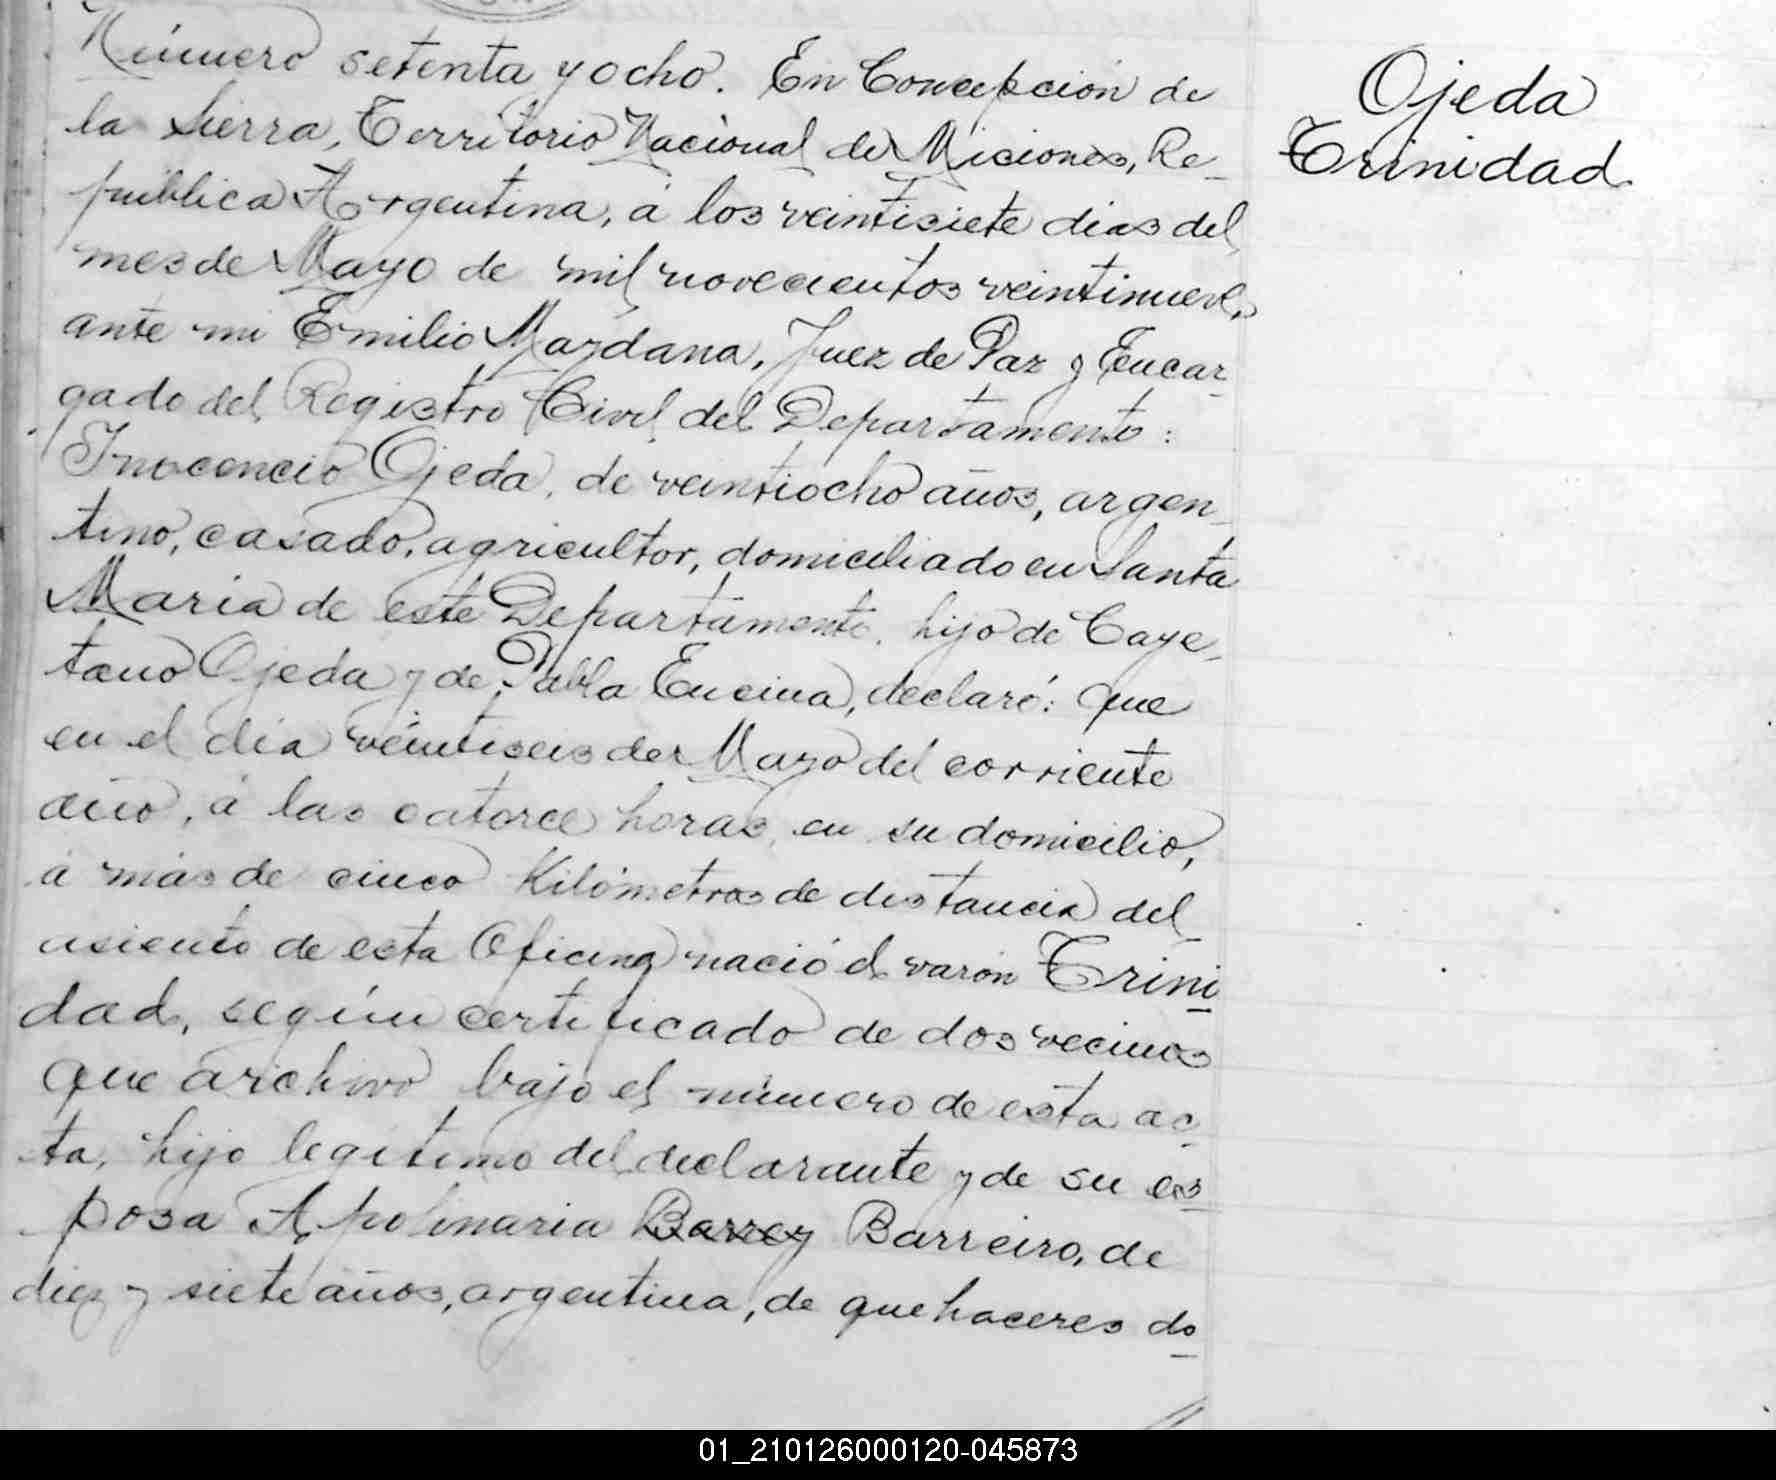 Número setenta y ocho. En Concepción de
la Sierra, Territorio Nacional de Misiones, Re-
pública Argentina, á los veintisiete dias del
mes de Mayo de mil novecientos veintinueve,
ante mi Emilio Maydana, Juez de Paz y Encar-
gado del Registro Civil del Departamento:
Inocencio Ojeda, de veintiocho años, argen-
tino, casado, agricultor, domiciliado en Santa
Maria de este Departamento, hijo de Caye-
tano Ojeda y de Pabla Encina, declaró: Que
en el día veintiseis de Mayo del corriente
año, á las catorce horas, en su domicilio,
á más de cinco Kilómetros de distancia del
asiento de esta Oficina nació el varón Trini
dad, según certificado de dos vecinos
que archivo bajo el número de esta ac-
ta, hijo legítimo del declarante y de su es-
posa Apolinaria Barrey Barreiro, de
diez y siete años, argentina, de quehaceres do-
Ojeda
Trinidad
01_210126000120-045873